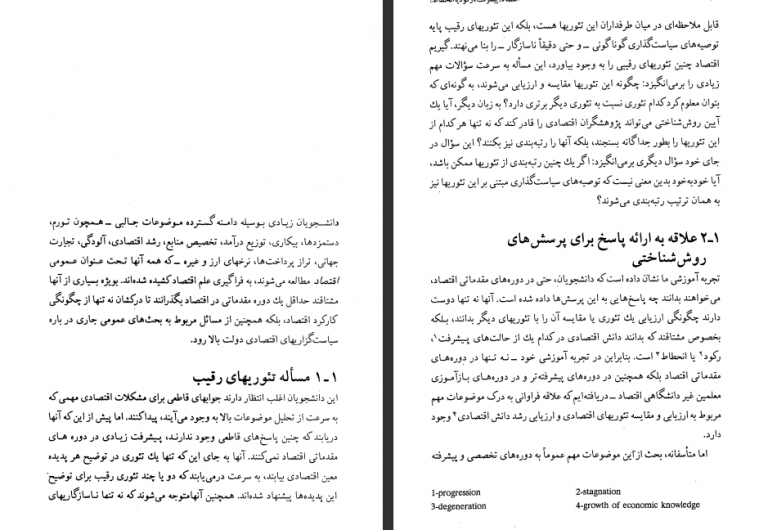 دانشجویان زیادی بوسیله دامنه گسترده موضوعات جالبی ــ همچون تورم،
دستمزدها، بیکاری، توزیع درآمد، تخصیص منابع، رشد اقتصادی، آلودگی، تجارت
جهانی، تراز پرداخت‌ها، نرخهای ارز و غیره ــ که همه آنها تحت عنوان عمومی
اقتصاد مطالعه می‌شوند، به فراگیری علم اقتصاد کشیده شده‌اند. بویژه بسیاری از آنها
مشتاقند حداقل یك دوره مقدماتی در اقتصاد بگذرانند تا درکشان نه تنها از چگونگی
کارکرد اقتصاد، بلکه همچنین از مسائل مربوط به بحث‌های عمومی جاری در باره
سیاست‌گزاریهای اقتصادی دولت بالا رود.
۱ـ۱ مسأله تئوریهای رقیب
این دانشجویان اغلب انتظار دارند جوابهای قاطعی برای مشکلات اقتصادی مهمی که
به سرعت از تحلیل موضوعات بالا به وجود می‌آیند، پیدا کنند. اما پیش از این که آنها
دریابند که چنین پاسخ‌های قاطعی وجود ندارند، پیشرفت زیادی در دوره های
مقدماتی اقتصاد نمی‌کنند. آنها به جای این که تنها یك تئوری در توضیح هر پدیده
معین اقتصادی بیابند، به سرعت درمی‌یابند که دو یا چند تئوری رقیب برای توضیح
این پدیده‌ها پیشنهاد شده‌اند. همچنین آنها متوجه می‌شوند که نه تنها ناسازگاریهای
قابل ملاحظه‌ای در میان طرفداران این تئوریها هست، بلکه این تئوریهای رقیب پایه
توصیه‌های سیاست‌گذاری گوناگونی ــ و حتی دقیقاً ناسازگار ــ را بنا می‌نهند. گیریم
اقتصاد چنین تئوریهای رقیبی را به وجود بیاورد، این مسأله به سرعت سؤالات مهم
زیادی را برمی‌انگیزد: چگونه این تئوریها مقایسه و ارزیابی می‌شوند، به گونه‌ای که
بتوان معلوم کرد کدام تئوری نسبت به تئوری دیگر برتری دارد؟ به زبان دیگر، آیا یك
آیین روش‌شناختی می‌تواند پژوهشگران اقتصادی را قادر کند که نه تنها هر کدام از
این تئوریها را بطور جداگانه بسنجند، بلکه آنها را رتبه‌بندی نیز بکنند؟ این سؤال در
جای خود سؤال دیگری برمی‌انگیزد: اگر یك چنین رتبه‌بندی از تئوریها ممکن باشد،
آیا خودبه‌خود بدین معنی نیست که توصیه‌های سیاست‌گذاری مبتنی بر این تئوریها نیز
به همان ترتیب رتبه‌بندی می‌شوند؟
۱ـ۲ علاقه به ارائه پاسخ برای پرسش‌های
روش‌شناختی
تجربه آموزشی ما نشان داده است که دانشجویان، حتی در دوره‌های مقدماتی اقتصاد،
می‌خواهند بدانند چه پاسخ‌هایی به این پرسش‌ها داده شده است. آنها نه تنها دوست
دارند چگونگی ارزیابی یك تئوری یا مقایسه آن را با تئوریهای دیگر بدانند، بلکه
بخصوص مشتاقند که بدانند دانش اقتصادی در کدام یك از حالت‌های پیشرفت۱،
رکود۲ یا انحطاط۳ است. بنابراین در تجربه آموزشی خود ــ نه تنها در دوره‌های
مقدماتی اقتصاد بلکه همچنین در دوره‌های پیشرفته‌تر و در دوره‌های بازآموزی
معلمین غیر دانشگاهی اقتصاد ــ دریافته‌ایم که علاقه فراوانی به درک موضوعات مهم
مربوط به ارزیابی و مقایسه تئوریهای اقتصادی و ارزیابی رشد دانش اقتصادی۴ وجود
دارد.
اما متأسفانه، بحث از این موضوعات مهم عموماً به دوره‌های تخصصی و پیشرفته
1-progression 2-stagnation
3-degeneration 4-growth of economic knowledge